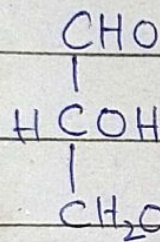 CHO
HCOH
CH₂O